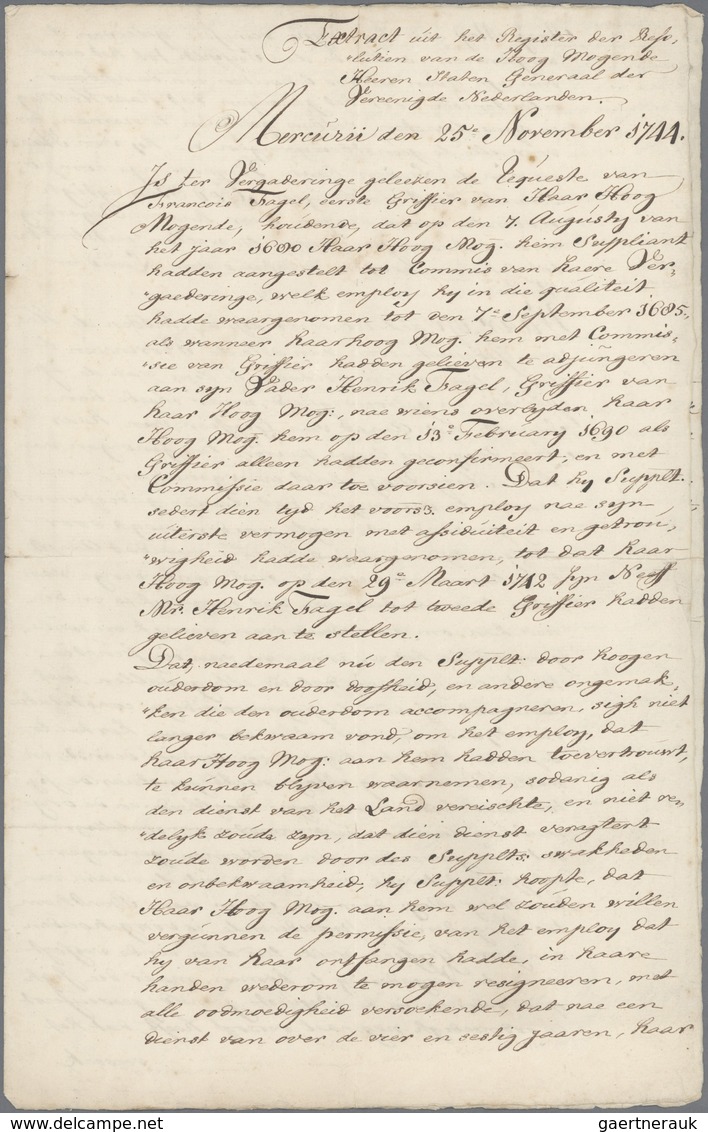 Extract uit het Register der Reso,
"lutien van de Hoog Mogende
Heeren Staten Generaal der
Vereenigde Nederlanden.
Mercurii den 25e November 1744.
Is ter Vergaderinge geleezen de Requeste van
Francois Fagel, eerste Griffier van Haar Hoog
Mogende, houdende, dat op den 7. Augusty van
het jaar 1680 Haar Hoog Mog. hem Suppliant
hadden aangestelt tot Commis van haere Ver,
"gaederinge, welk employ hy in die qualiteit
hadde waargenomen tot den 7e September 1685,
als wanneer haar hoog Mog. hem met Commis,
"sie van Griffier hadden gelieven te adjungeren
aan syn Vader Henrik Fagel, Griffier van
haar Hoog Mog:, nae wiens overlyden haar
Hoog Mog. hem op den 13e February 1690 als
Griffier alleen hadden geconfirmeert, en met
Commissie daar toe voorsien. Dat hy Supplt.
sedert dien tyd het voors. employ nae syn
uiterste vermogen met assiduiteit en getrou,
"wigheid hadde waargenomen, tot dat haar
Hoog Mog. op den 29e Maart 1742 syn Neeff
Mr. Henrik Fagel tot tweede Griffier hadden
gelieven aan te stellen.
Dat, naedemaal nu den Supplt: door hoogen
ouderdom en door doofheid, en andere ongemak,
"ken die den ouderdom accompagneren, sigh niet
langer bekwaam vond, om het employ, dat
haar Hoog Mog: aan hem hadden toevertrouwt,
te kunnen blyven waarnemen, sodanig als
den dienst van het Land vereischte, en niet re,
"delyk zoude zyn, dat dien dienst veragtert
zoude worden door des Supplts. swakheden
en onbekwaamheid, hy Supplt: hoopte, dat
Haar Hoog Mog. aan hem wel zouden willen
vergunnen de permissie, van het employ dat
hy van haar ontfangen hadde, in haare
handen wederom te mogen resigneeren, met
alle oodmoedigheid versoekende, dat nae een
dienst van over de vier en sestig jaaren, haar
gaertnerauk